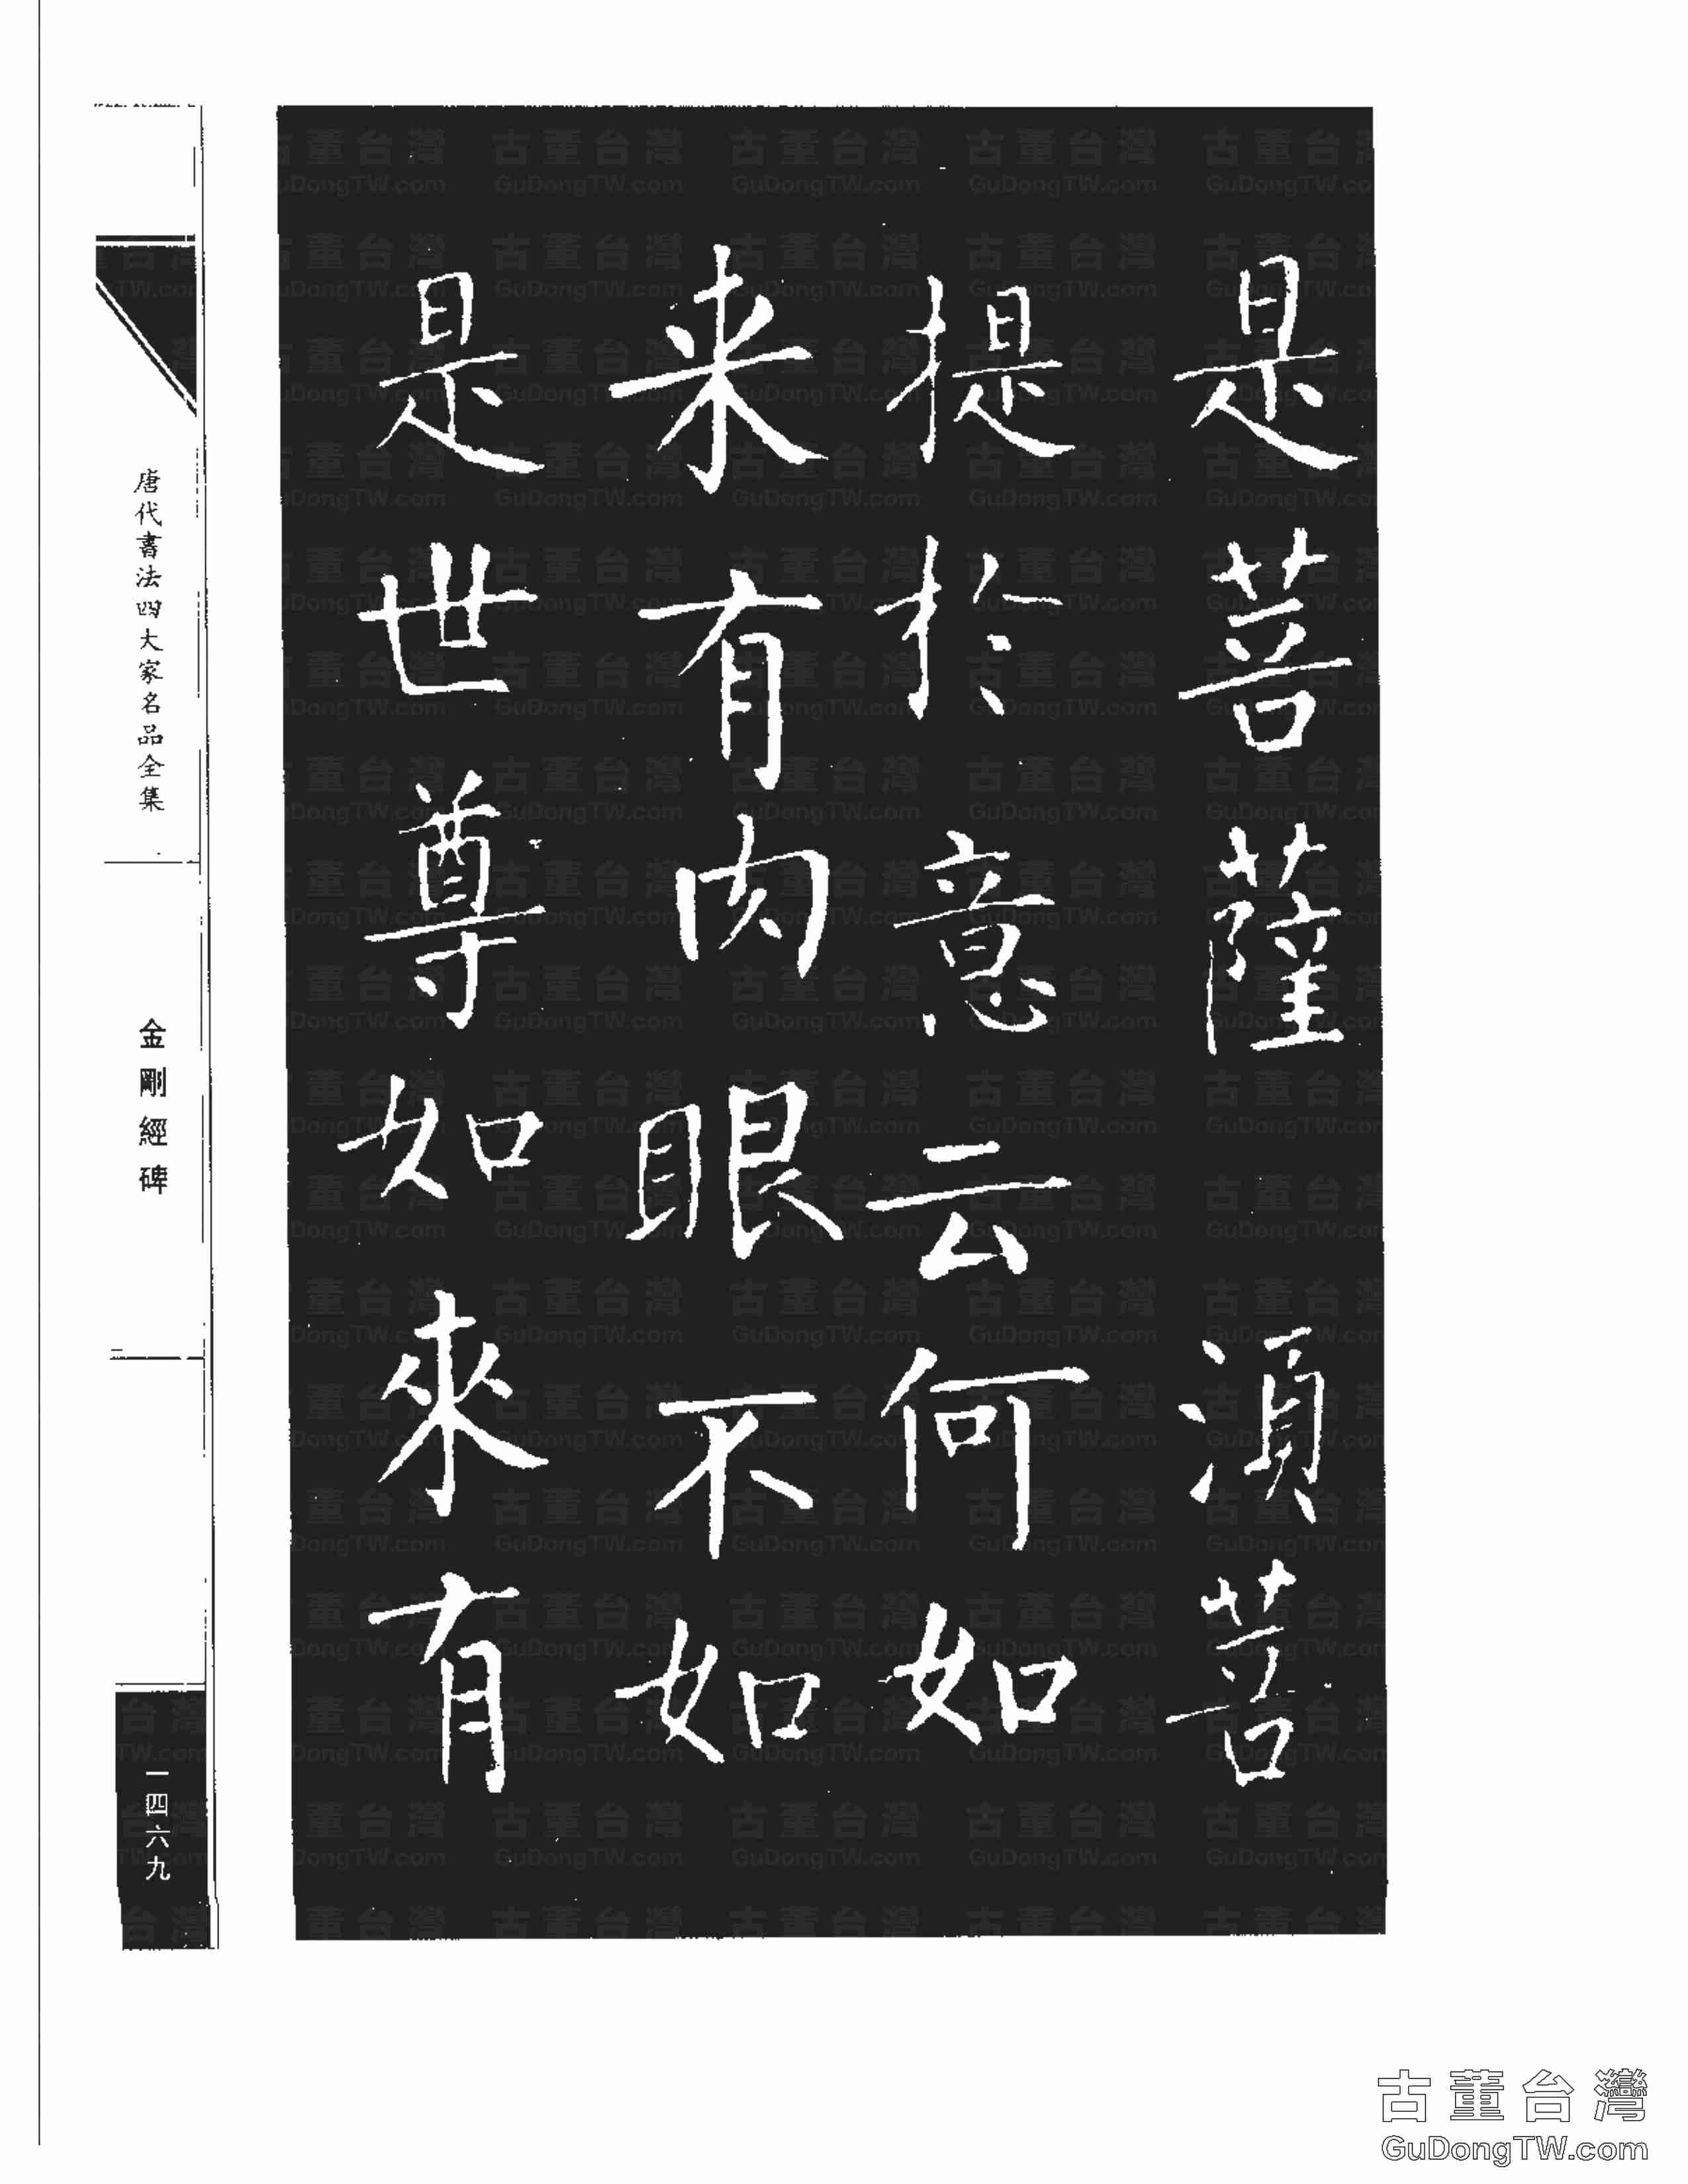 是菩薩湏菩
提於意云何如
来有肉眼不如
是世尊如來有
唐代書法四大家名品全集
金剛經碑
一四六九
古董台灣
GuDongTW.com